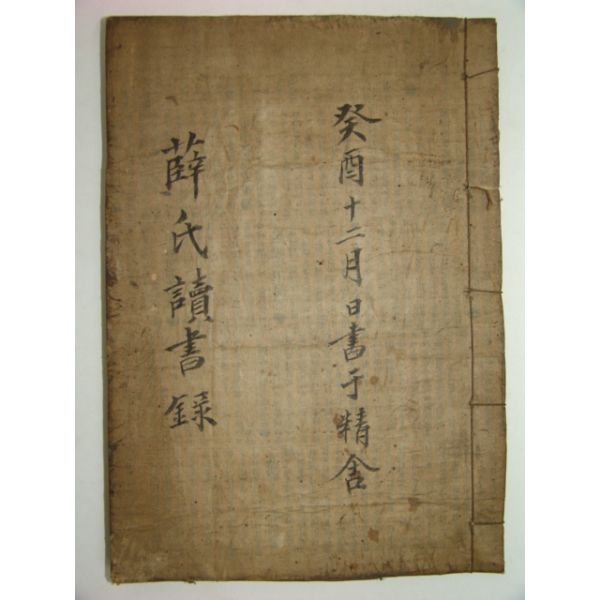 癸酉十二月日書于精舍
薛氏讀書錄